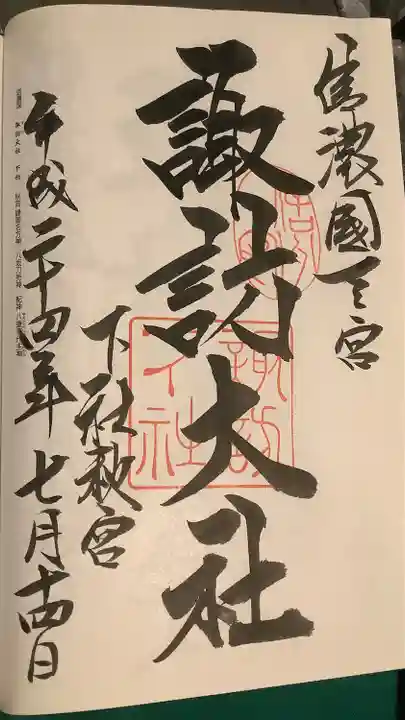 信濃國一之宮
諏訪大社
下社秋宮
平成二十四年七月十四日
諏訪
下社